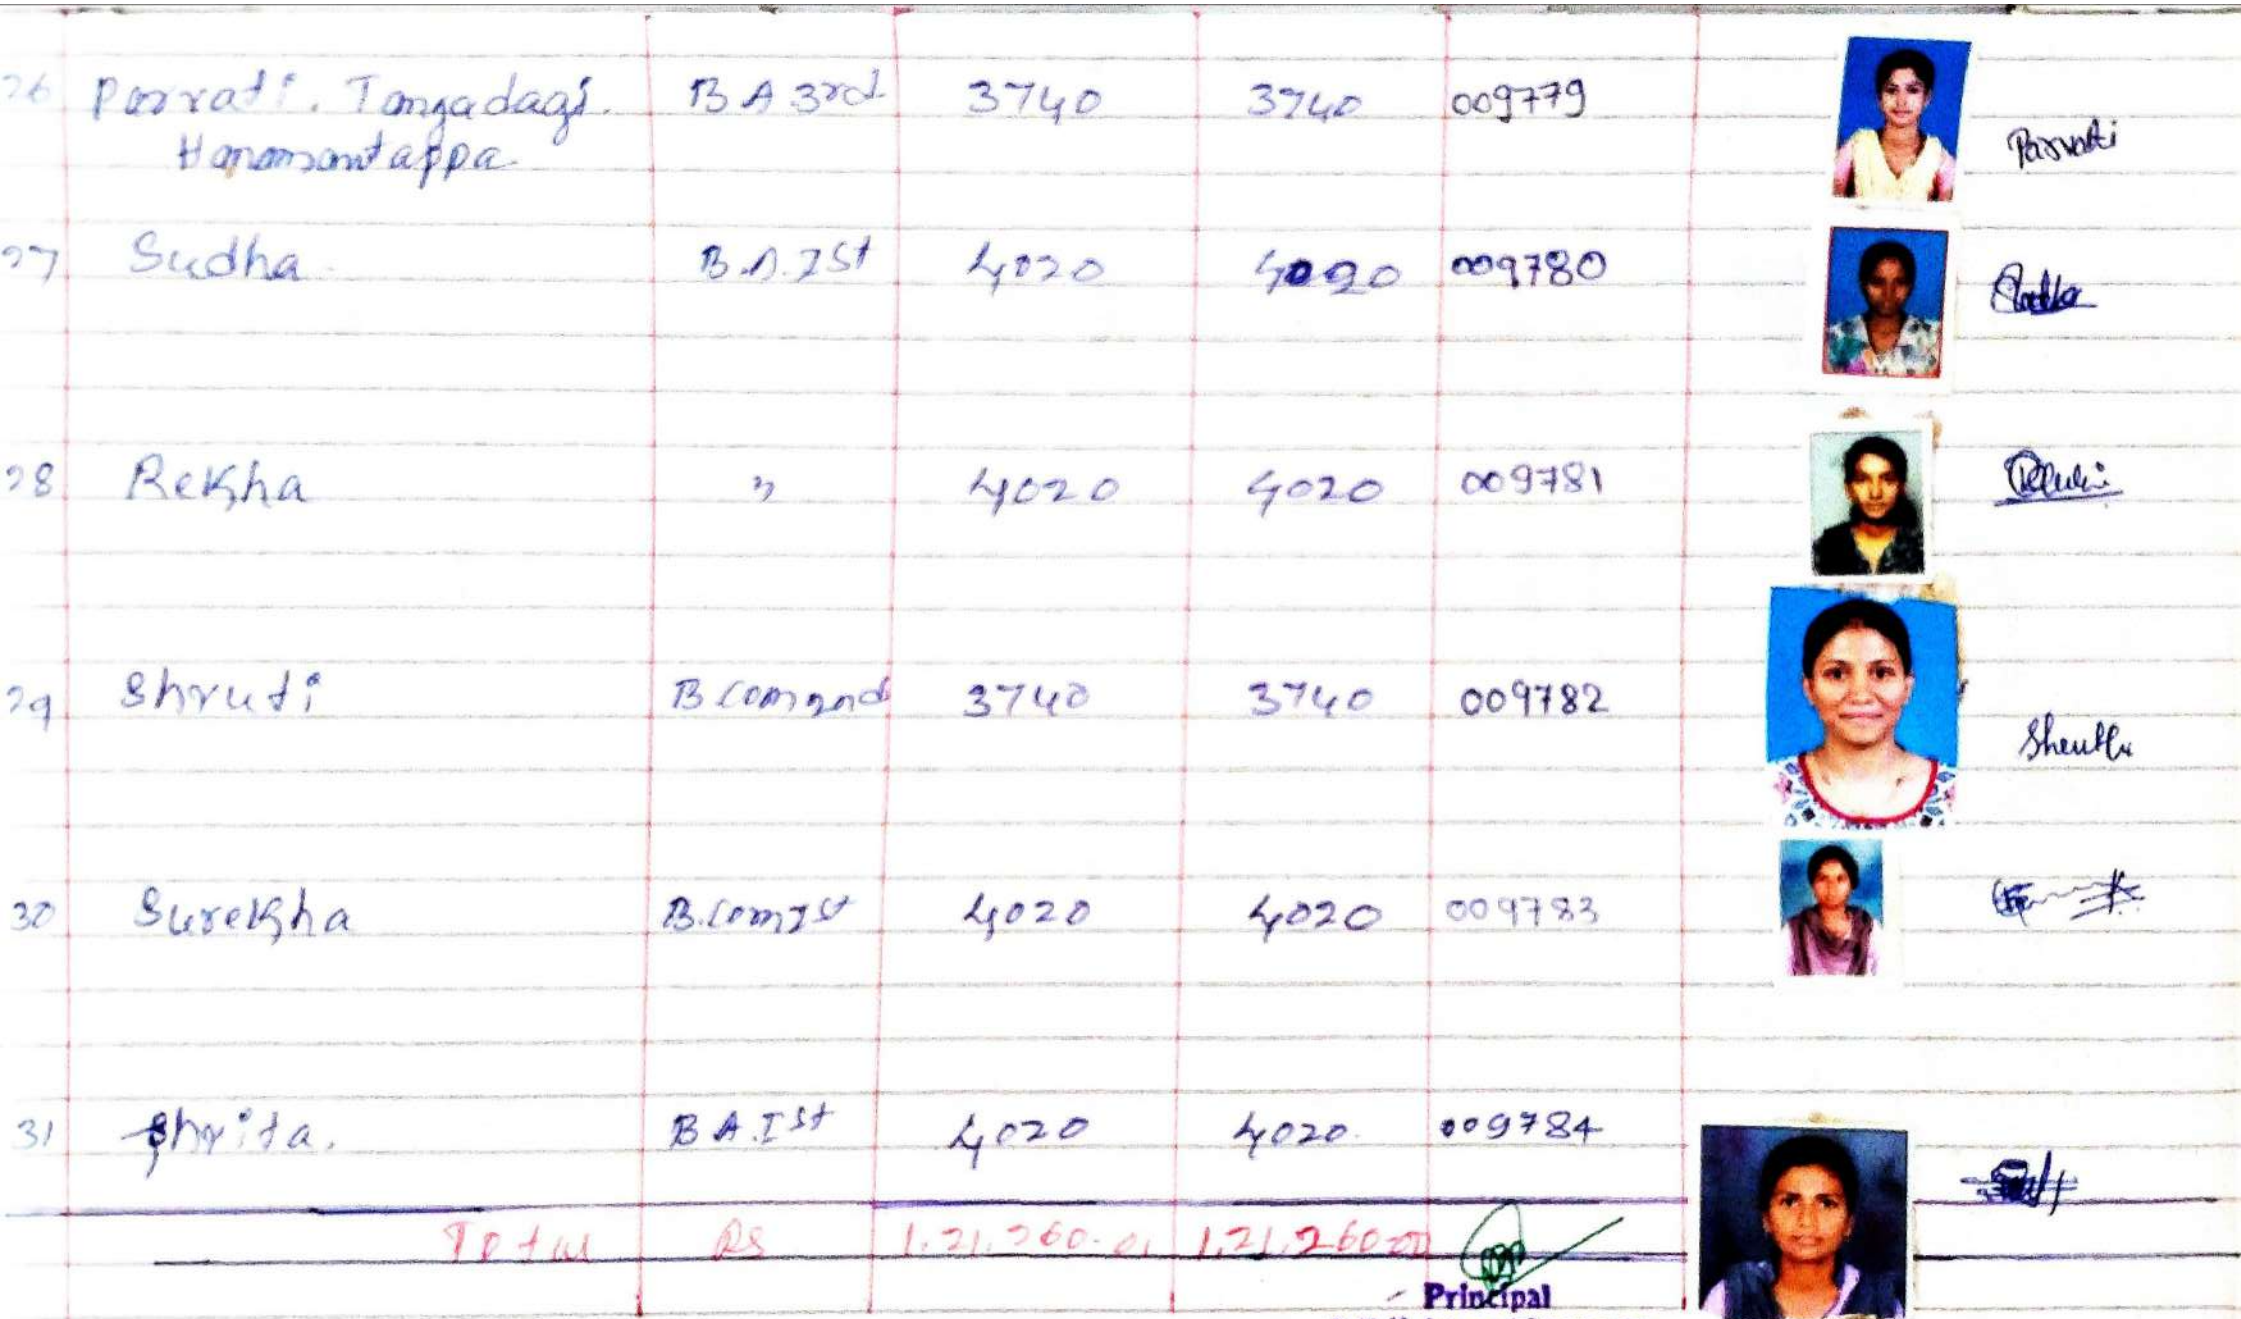 26 Parvati. Tangadagi. B A 3rd 3740 3740 009779
Hanamantappa Parvati
27 Sudha B.A. Ist 4020 4020 009780
28 Rekha " 4020 4020 009781
29 Shruti B com 2nd 3740 3740 009782
Shruthi
30 Surekha B.com Ist 4020 4020 009783
31 B A. Ist 4020 4020. 009784
Total Rs 1,21,260.00 1,21,260.00
Principal